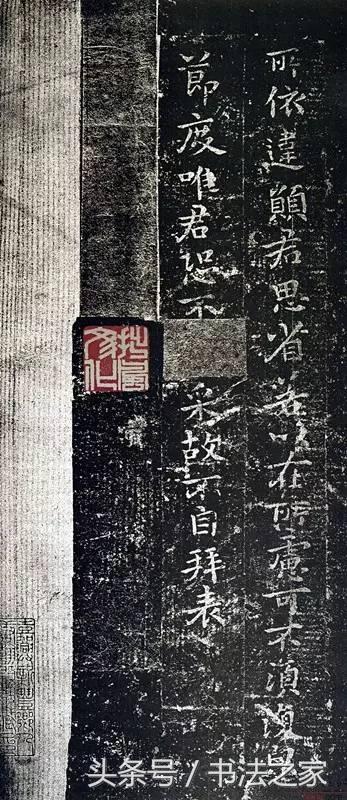 所依違願君思省若以在所慮可不須復皃
節度唯君恐不采故不自拜表
头条号 / 书法之家